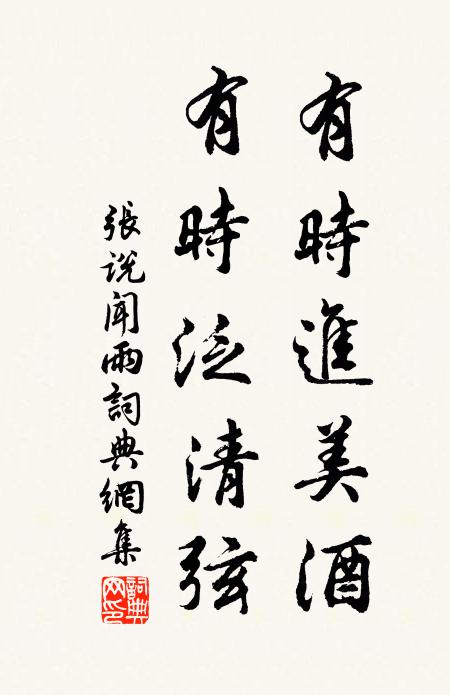 有時進美酒
有時泛清弦
張说聞雨詞典網集
詞典网印